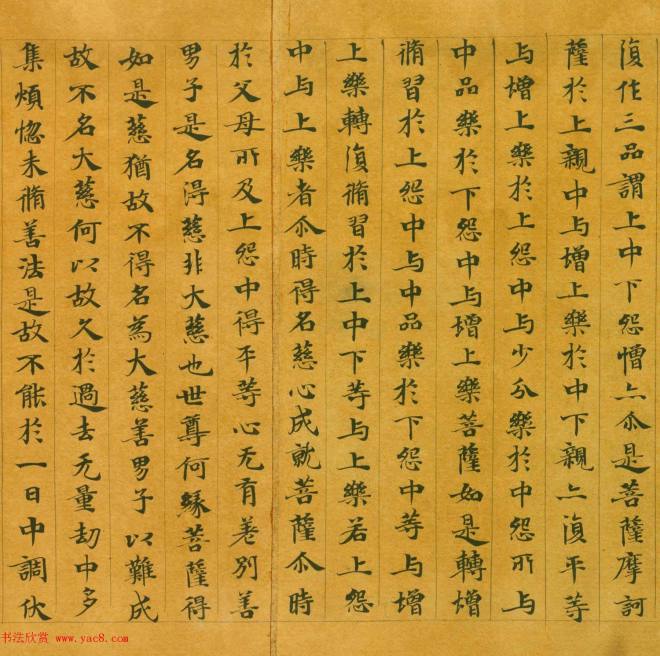 復作三品謂上中下怨憎亦尒是菩薩摩訶
薩於上親中与增上樂於中下親亦復平等
与增上樂於上怨中与少分樂於中怨所与
中品樂於下怨中与增上樂菩薩如是轉增
脩習於上怨中与中品樂於下怨中等与增
上樂轉復脩習於上中下等与上樂若上怨
中与上樂者尒時得名慈心成就菩薩尒時
於父母所及上怨中得平等心无有差别善
男子是名得慈非大慈也世尊何緣菩薩得
如是慈猶故不得名為大慈善男子以難成
故不名大慈何以故久於過去无量劫中多
集煩惚未脩善法是故不能於一日中調伏
书法欣赏 www.yac8.com